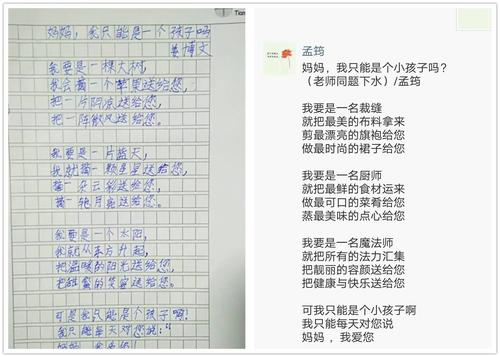 Tian
妈妈,我只能是一个孩子吗
姜博文
我要是一棵大树,
我会摘一个苹果送给您,
把一片阴凉送给您,
把一阵微风送给您。
我要是一片蓝天,
我就摘一颗星星送给您,
摘一朵云彩送给您,
摘一轮月亮送给您。
我要是一个太阳,
我就从东方升起,
把温暖的阳光送给您,
把甜蜜的笑容送给您。
可是我只能是个孩子啊!
我只能每天对您说:“
妈妈,我爱您!
孟筠
妈妈,我只能是个小孩子吗?
(老师同题下水)/孟筠
我要是一名裁缝
就把最美的布料拿来
剪最漂亮的旗袍给您
做最时尚的裙子给您
我要是一名厨师
就把最鲜的食材运来
做最可口的菜肴给您
蒸最美味的点心给您
我要是一名魔法师
就把所有的法力汇集
把靓丽的容颜送给您
把健康与快乐送给您
可我只能是个小孩子啊
我只能每天对您说
妈妈,我爱您